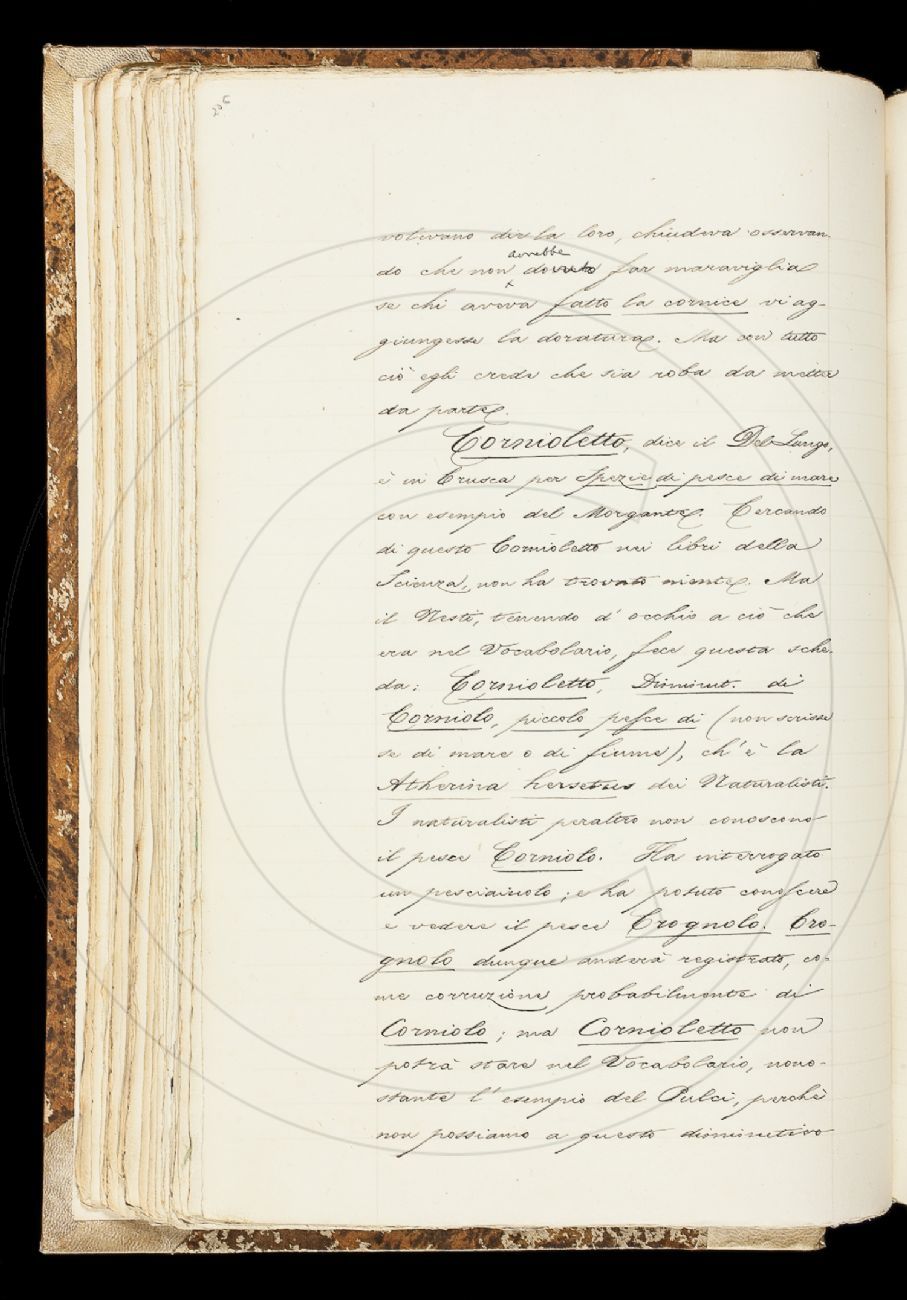 206
volevano dir la loro, chiudeva osservan-
do che non avrebbe dovuto far maraviglia
se chi aveva fatto la cornice vi ag-
giungesse la doratura. Ma con tutto
ciò egli crede che sia roba da metter
da parte.
Cornioletto, dice il Del Lungo,
è in Crusca per Spezie di pesce di mare
con esempio del Morgante. Cercando
di questo Cornioletto nei libri della
Scienza, non ha trovato niente. Ma
il Nesti, tenendo d'occhio a ciò che
era nel Vocabolario, fece questa sche-
da: Cornioletto, Diminut. di
Corniolo, piccolo pesce di (non scrisse
se di mare o di fiume), ch'è la
Atherina hepsetus dei Naturalisti.
I naturalisti peraltro non conoscono
il pesce Corniolo. Ha interrogato
un pesciaiuolo; e ha potuto conoscere
e vedere il pesce Crognolo. Cro-
gnolo dunque anderà registrato, co-
me corruzione probabilmente di
Corniolo; ma Cornioletto non
potrà stare nel Vocabolario, nono-
stante l'esempio del Pulci, perchè
non possiamo a questo diminutivo